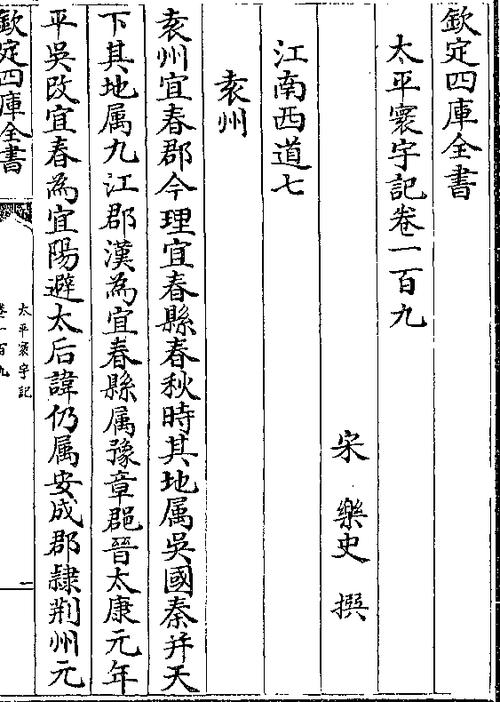 欽定四庫全書
太平寰宇記卷一百九
宋 樂史 撰
江南西道七
袁州
袁州宜春郡今理宜春縣春秋時其地属吳國秦并天
下其地属九江郡漢為宜春縣属豫章郡晉太康元年
平吳改宜春為宜陽避太后諱仍属安成郡隷荆州元
欽定四庫全書
太平寰宇記
卷一百九